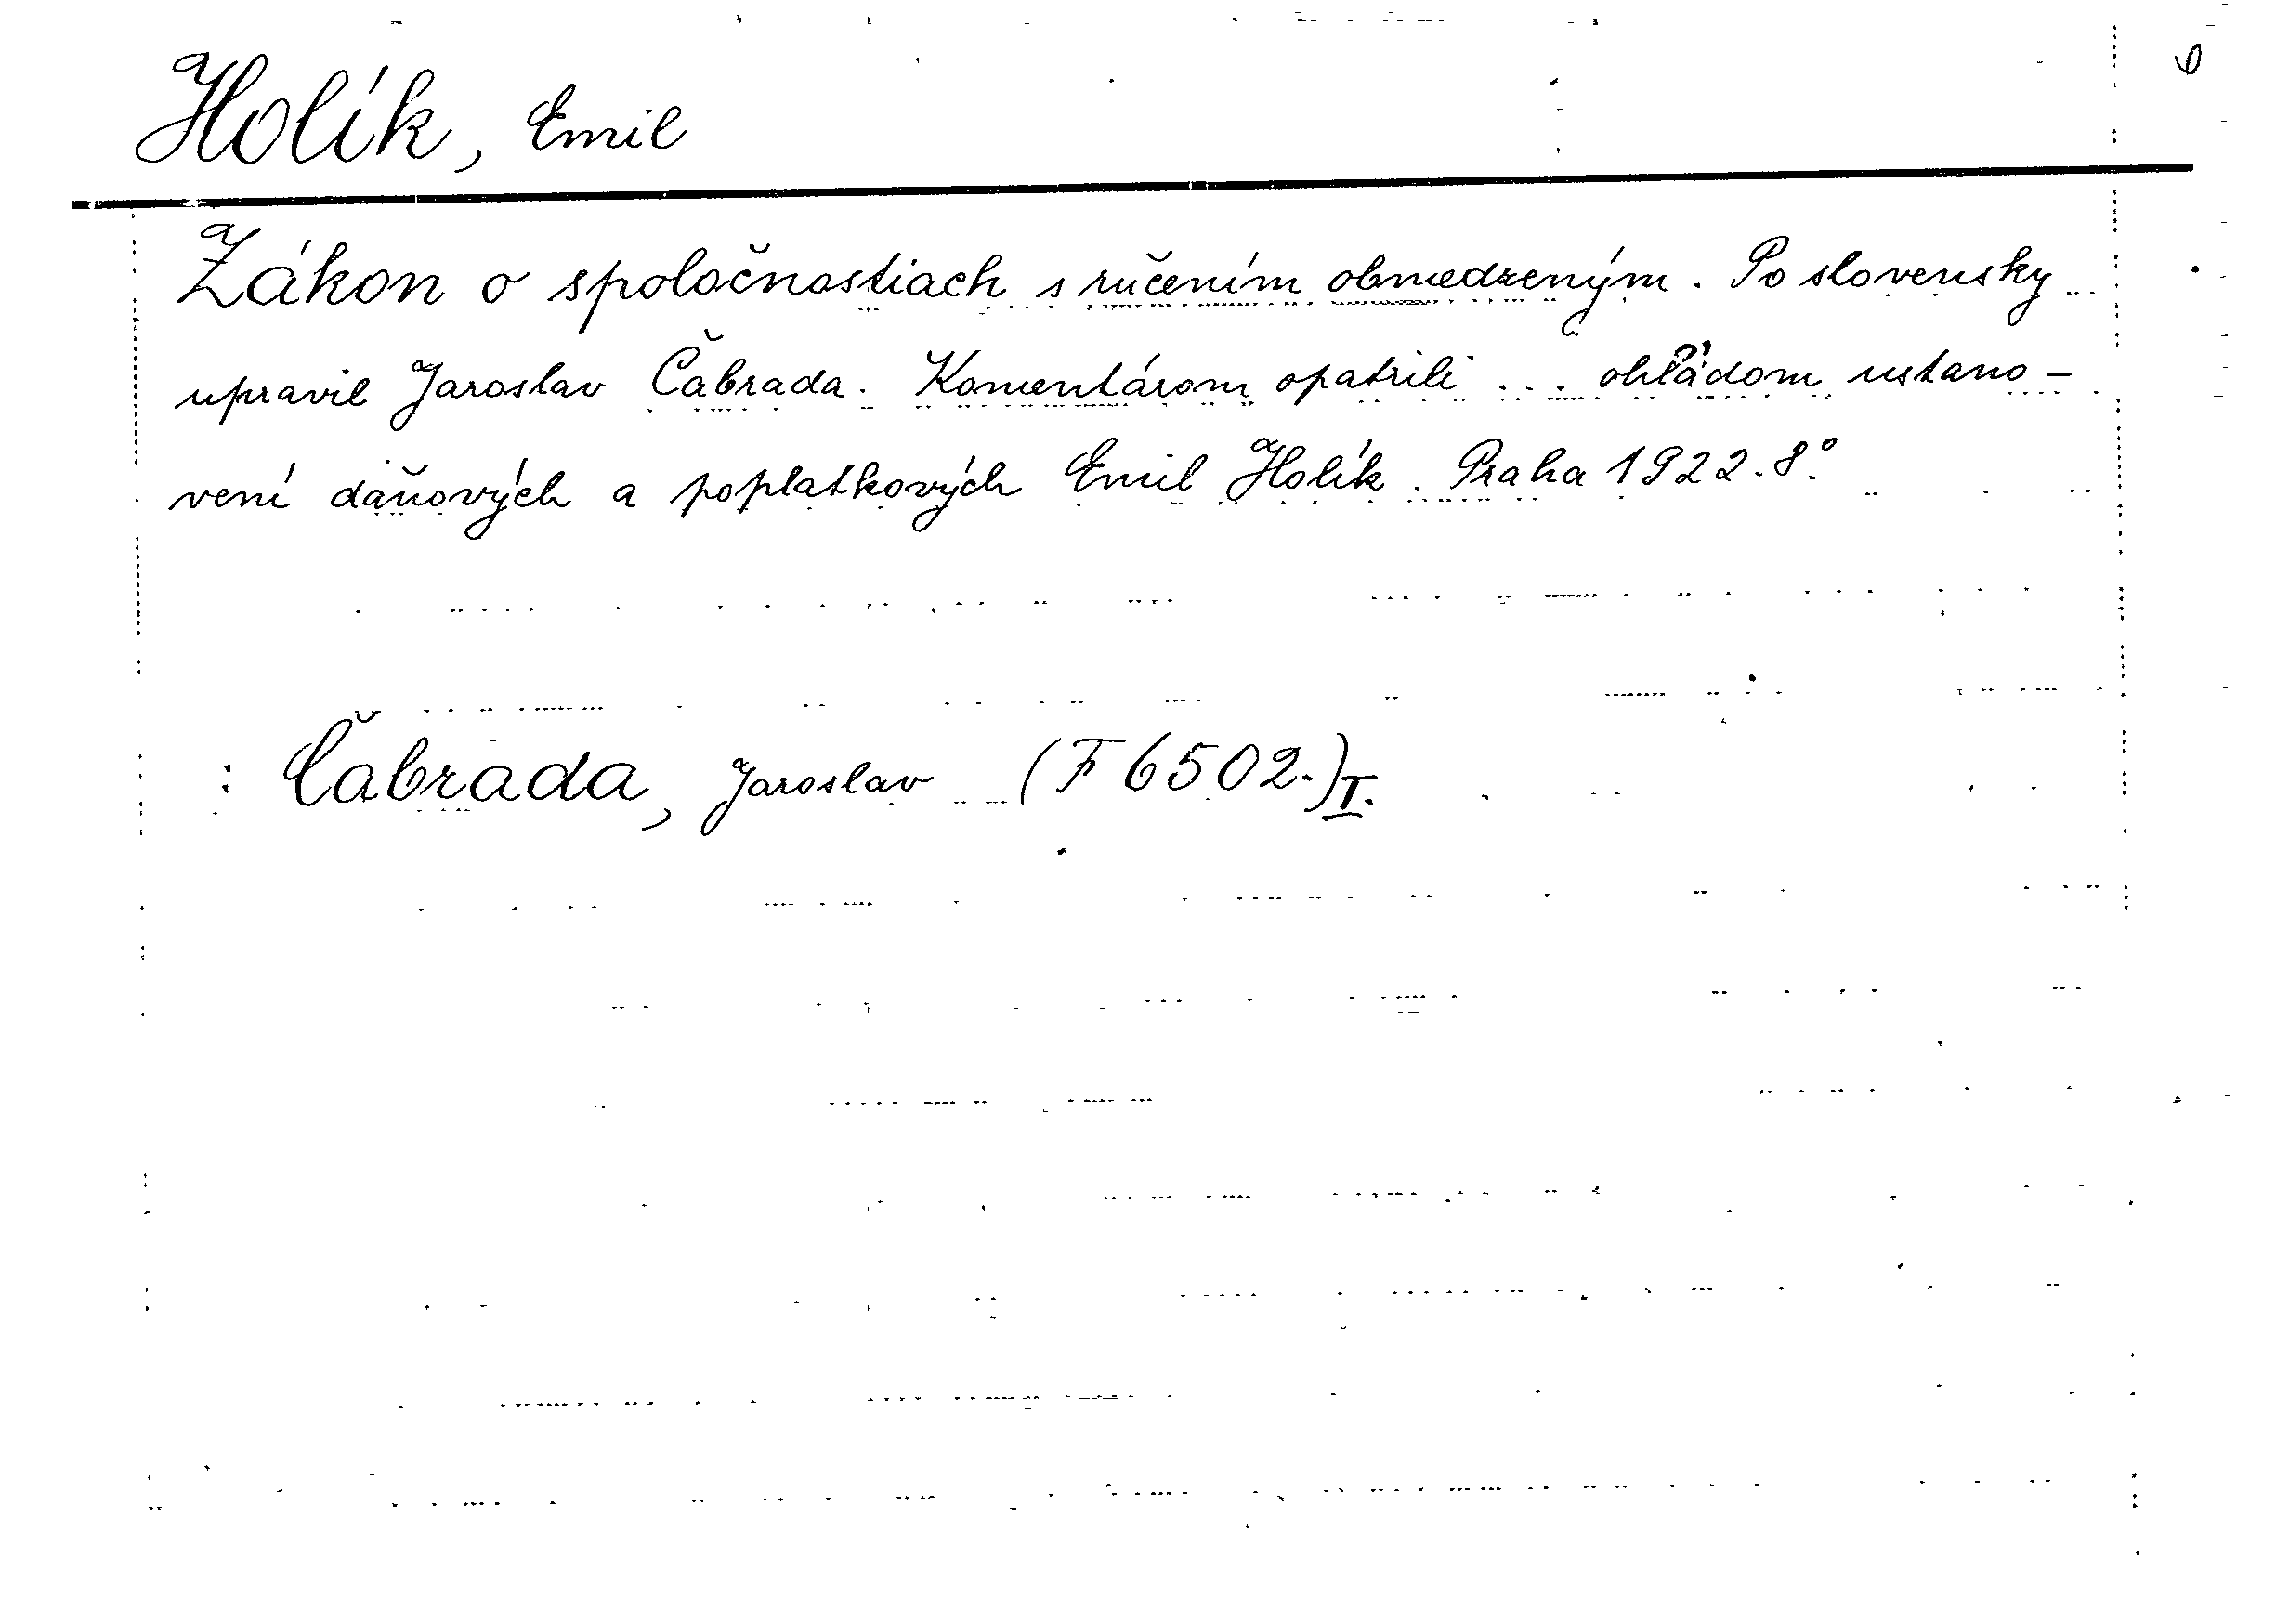 Holík, Emil
Zákon o spoločnostiach s ručením obmedzeným. Po slovensky
upravil Jaroslav Čabrada. Komentárom opatrili ... ohľádom ustano-
vení daňových a poplatkových Emil Holík. Praha 1922. 8°.
: Čabrada, Jaroslav (F 6502.)I.